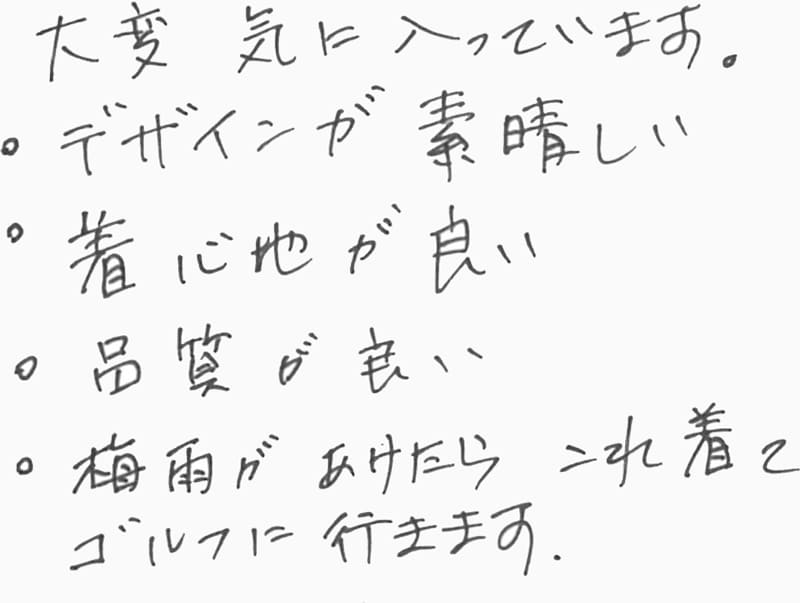 大変 気に入っています。
• デザインが素晴しい
• 着心地が良い
• 品質が良い
• 梅雨があけたら これ着て
ゴルフに行きます.